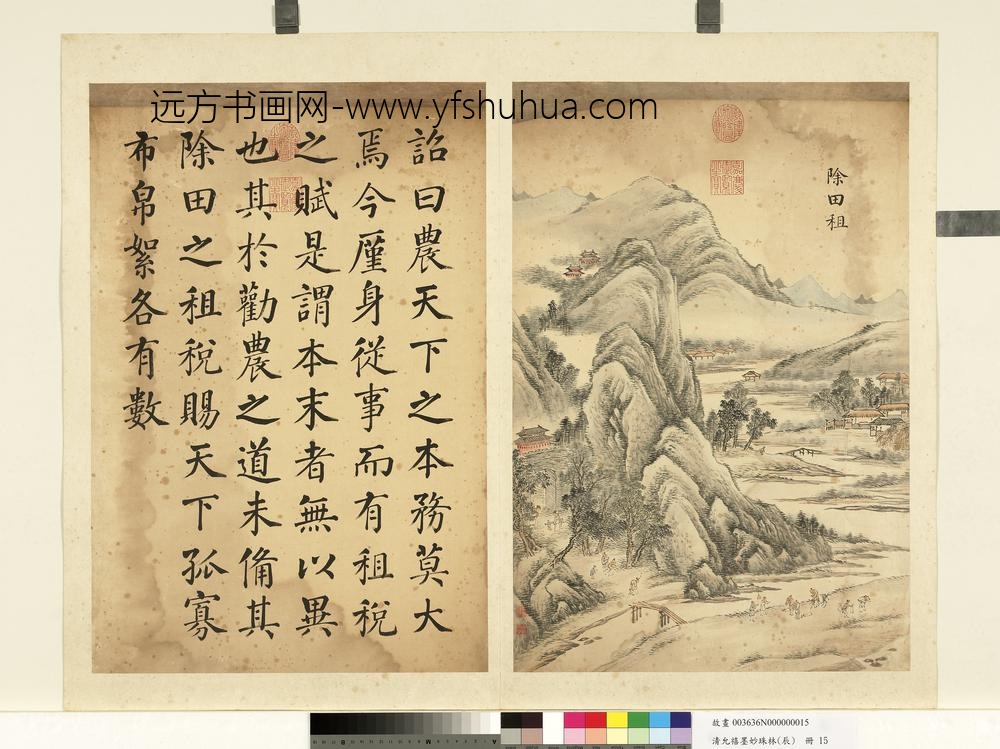 远方书画网-www.yfshuhua.com
詔曰農天下之本務莫大
焉今廑身從事而有租稅
之賦是謂本末者無以異
也其於勸農之道未備其
除田之租稅賜天下孤寡
布帛絮各有數
除田租
故畫 003636N000000015
清允禧墨妙珠林(辰) 冊 15